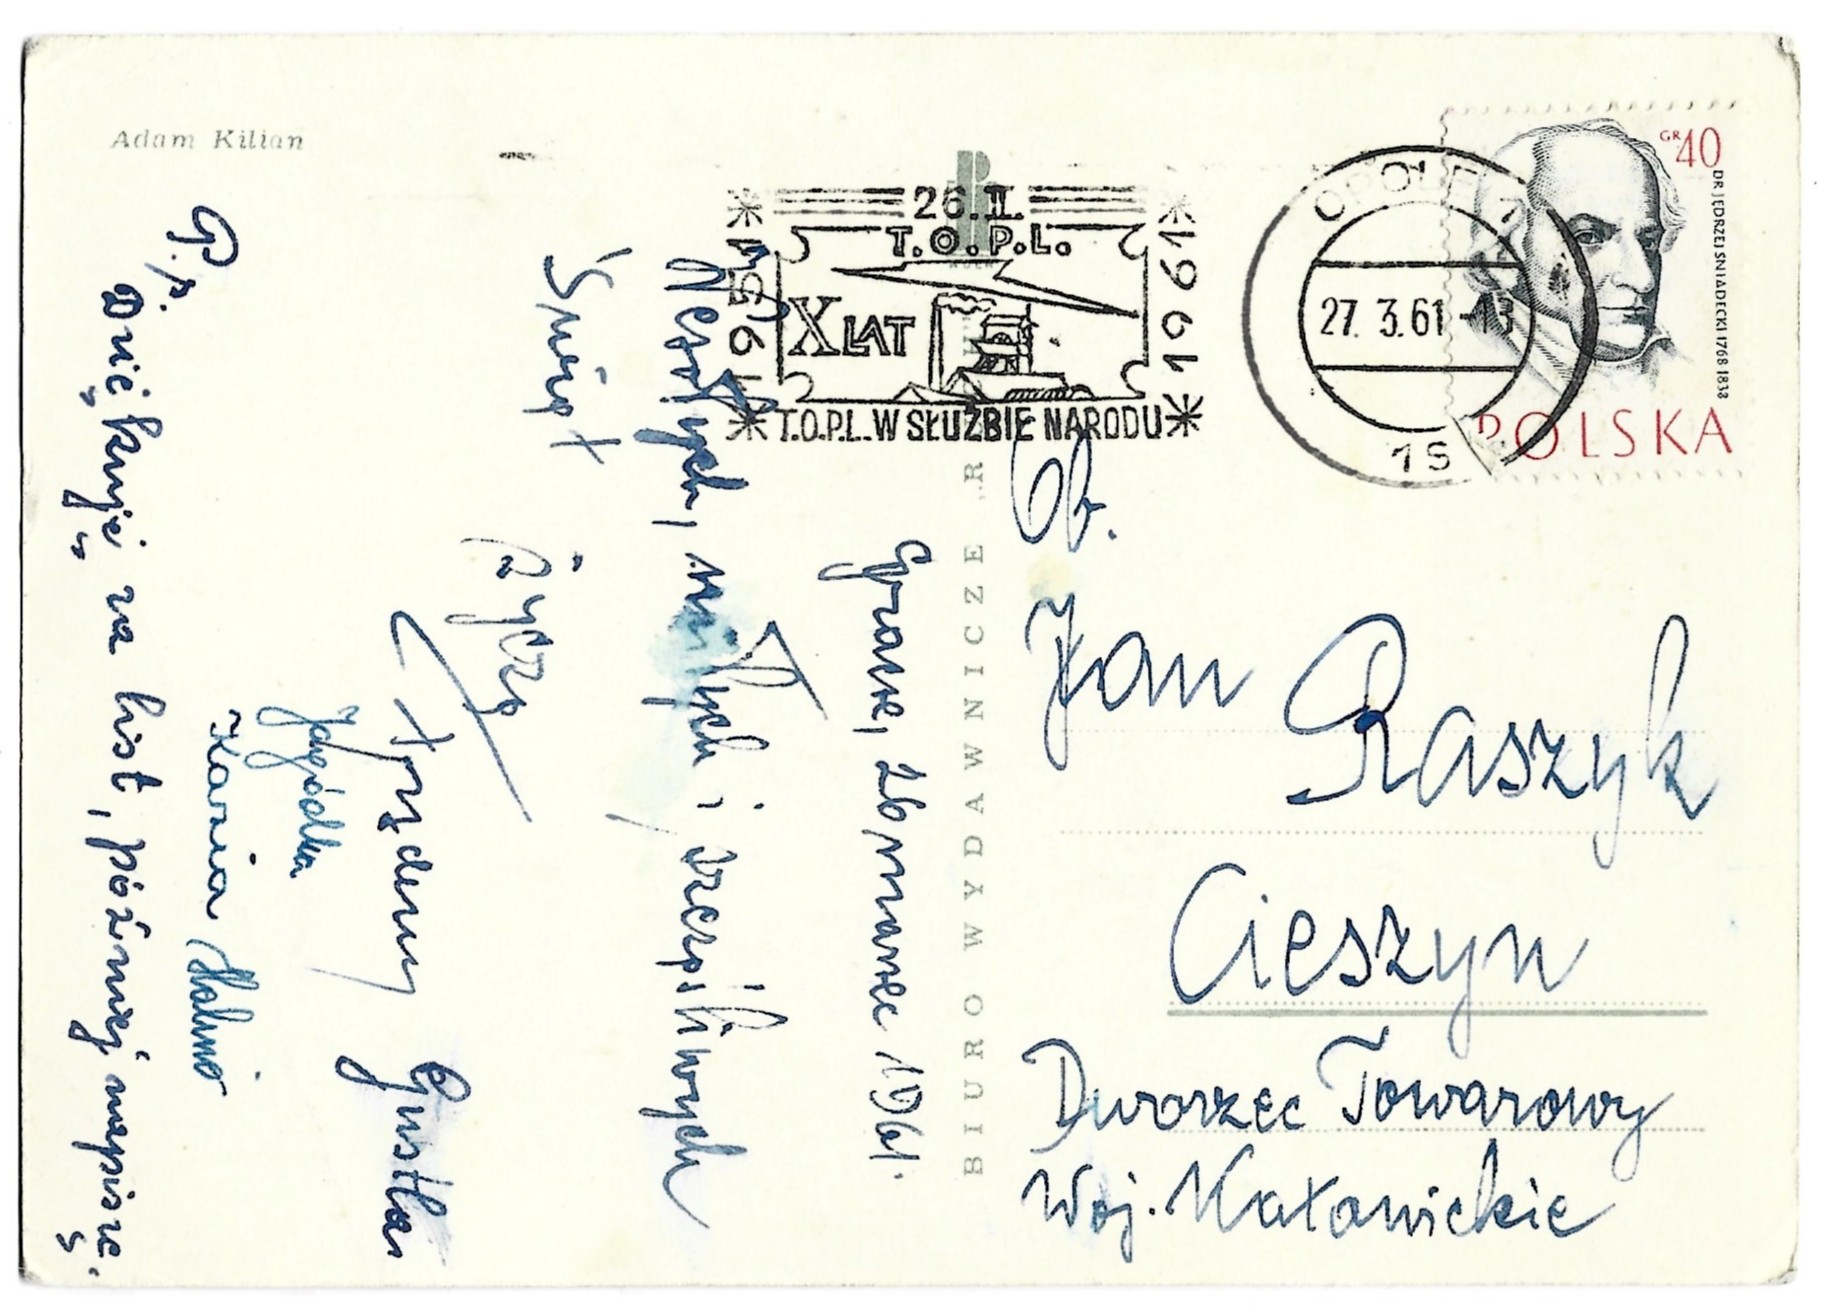 Adam Kilian
26.II.
T.O.P.L.
1951
1961
X LAT
T.O.P.L. W SŁUŻBIE NARODU
OPOLE
27. 3. 61 - 13
1s
GR 40
DR JĘDRZEJ SNIADECKI 1768 1838
POLSKA
BIURO WYDAWNICZE R
1961
Wesołych, miłych i szczęśliwych
Świąt
życzą
Gustka
Jagódka
P.s.
Dziękuję za list, później napiszę.
Ob.
Jan Raszyk
Cieszyn
Dworzec Towarowy
Woj. Katowickie